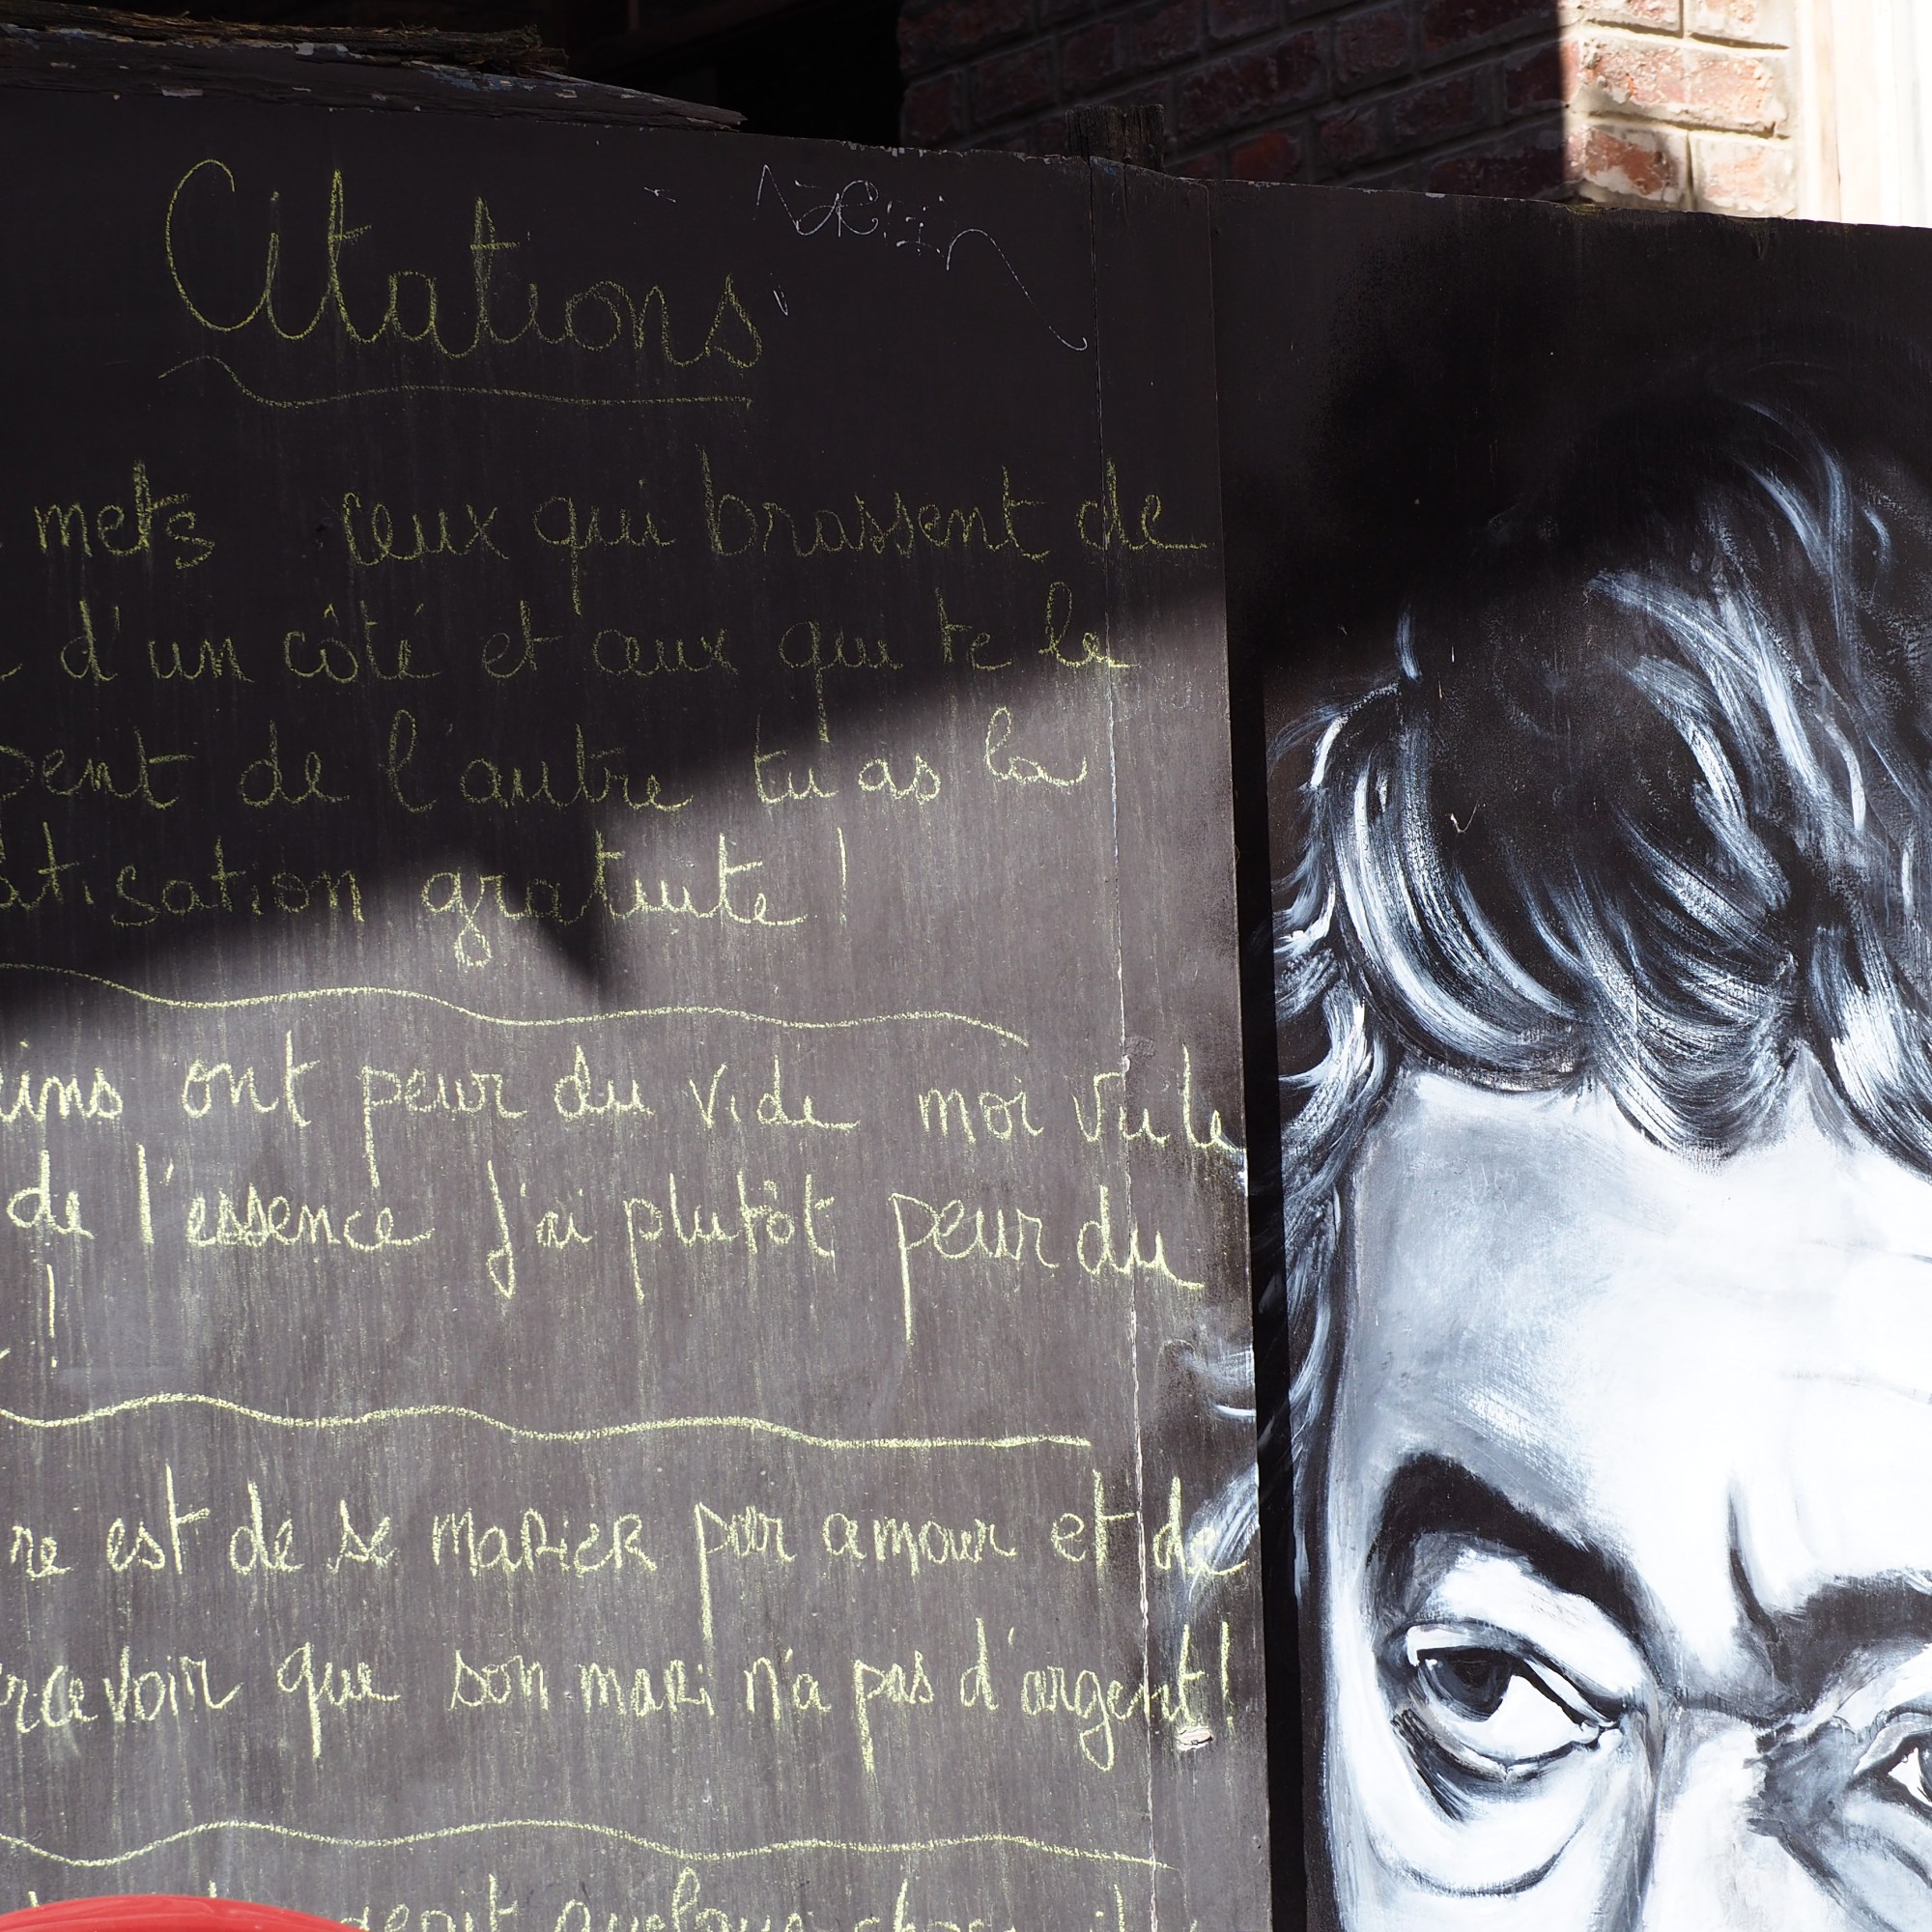 Citations
mets ceux qui brassent de
d'un côté et ceux qui te le
pent de l'autre tu as la
atisation gratuite !
ains ont peur du vide moi vu le
de l'essence j'ai plutôt peur du
!
re est de se marier par amour et de
rcevoir que son mari n'a pas d'argent !
quelque chose